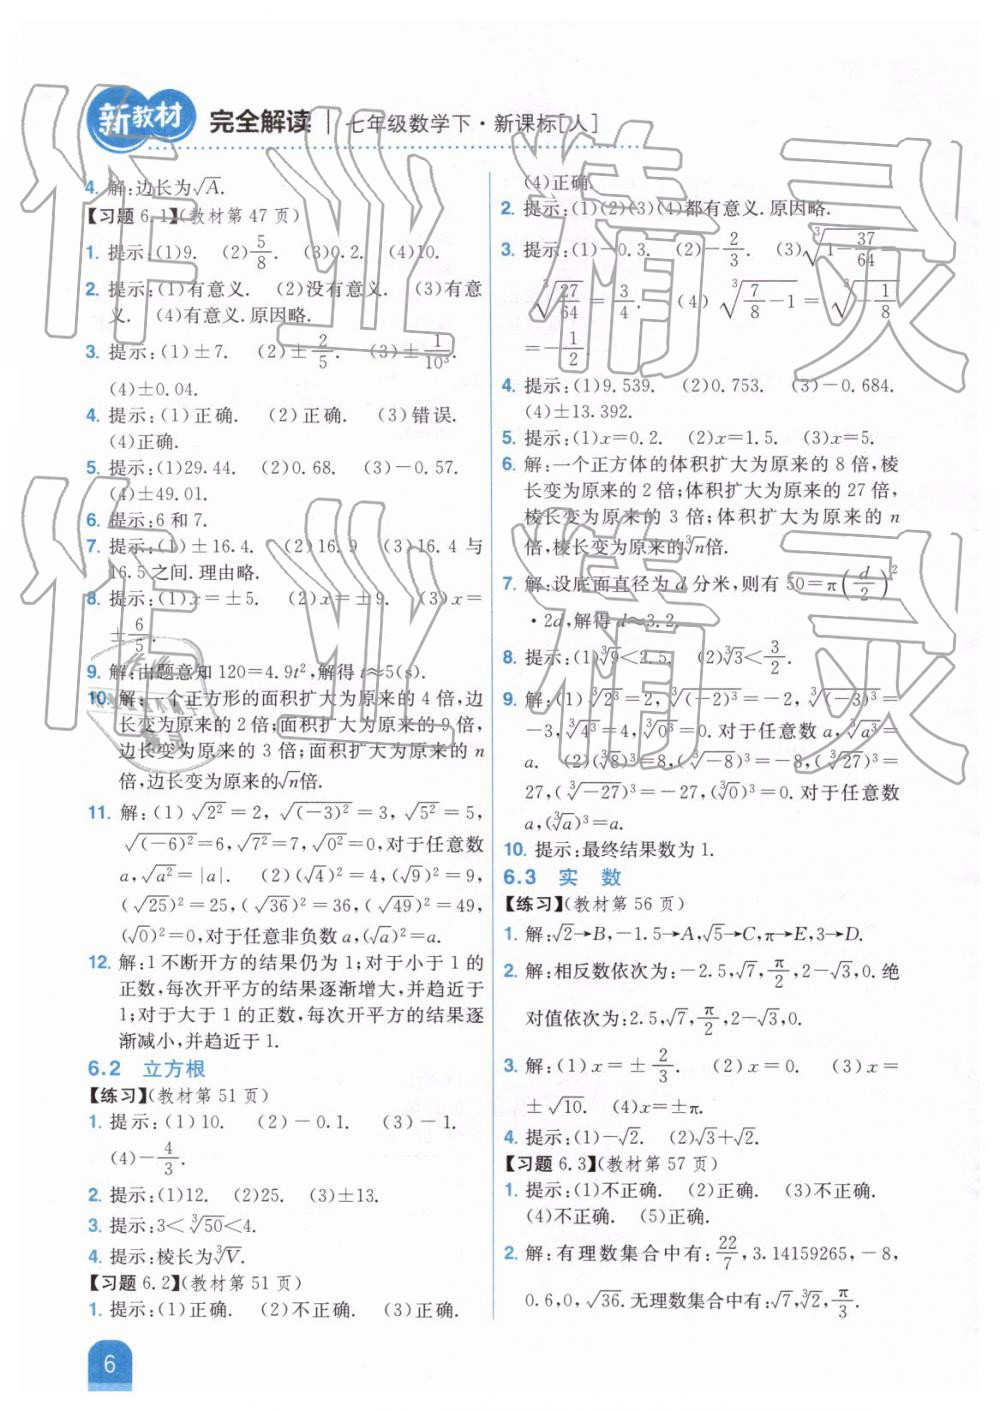 新教材 完全解读 | 七年级数学下·新课标[人]
4. 解:边长为√A.
【习题 6.1】(教材第 47 页)
1. 提示:(1)9. (2)5/8. (3)0.2. (4)10.
2. 提示:(1)有意义. (2)没有意义. (3)有意
义. (4)有意义.原因略.
3. 提示:(1)±7. (2)±2/5. (3)±1/10³.
(4)±0.04.
4. 提示:(1)正确. (2)正确. (3)错误.
(4)正确.
5. 提示:(1)29.44. (2)0.68. (3)-0.57.
(4)±49.01.
6. 提示:6 和 7.
7. 提示:(1)±16.4. (2)16.9 (3)16.4 与
16.5 之间.理由略.
8. 提示:(1)x=±5. (2)x=±9. (3)x=
±6/5.
9. 解:由题意知 120=4.9t²,解得 t≈5(s).
10. 解:一个正方形的面积扩大为原来的 4 倍,边
长变为原来的 2 倍;面积扩大为原来的 9 倍,
边长变为原来的 3 倍;面积扩大为原来的 n
倍,边长变为原来的√n倍.
11. 解:(1)√2²=2,√(-3)²=3,√5²=5,
√(-6)²=6,√7²=7,√0²=0,对于任意数
a,√a²=|a|. (2)(√4)²=4,(√9)²=9,
(√25)²=25,(√36)²=36,(√49)²=49,
(√0)²=0,对于任意非负数 a,(√a)²=a.
12. 解:1 不断开方的结果仍为 1;对于小于 1 的
正数,每次开平方的结果逐渐增大,并趋近于
1;对于大于 1 的正数,每次开平方的结果逐
渐减小,并趋近于 1.
6.2 立方根
【练习】(教材第 51 页)
1. 提示:(1)10. (2)-0.1. (3)-1.
(4)-4/3.
2. 提示:(1)12. (2)25. (3)±13.
3. 提示:3<∛50<4.
4. 提示:棱长为∛V.
【习题 6.2】(教材第 51 页)
1. 提示:(1)正确. (2)不正确. (3)正确.
(4)正确.
2. 提示:(1)(2)(3)(4)都有意义.原因略.
3. 提示:(1)-0.3. (2)-2/3. (3)∛(1-37/64)=
∛(27/64)=3/4. (4)∛(7/8-1)=∛(-1/8)
=-1/2.
4. 提示:(1)9.539. (2)0.753. (3)-0.684.
(4)±13.392.
5. 提示:(1)x=0.2. (2)x=1.5. (3)x=5.
6. 解:一个正方体的体积扩大为原来的 8 倍,棱
长变为原来的 2 倍;体积扩大为原来的 27 倍,
棱长变为原来的 3 倍;体积扩大为原来的 n
倍,棱长变为原来的∛n倍.
7. 解:设底面直径为 d 分米,则有 50=π(d/2)²
·2d,解得 d≈3.2.
8. 提示:(1)∛9<2.5. (2)∛3<3/2.
9. 解:(1)∛2³=2,∛(-2)³=-2,∛(-3)³=
-3,∛4³=4,∛0³=0.对于任意数 a,∛a³=
a. (2)(∛8)³=8,(∛-8)³=-8,(∛27)³=
27,(∛-27)³=-27,(∛0)³=0.对于任意数
a,(∛a)³=a.
10. 提示:最终结果数为 1.
6.3 实 数
【练习】(教材第 56 页)
1. 解:√2→B,-1.5→A,√5→C,π→E,3→D.
2. 解:相反数依次为:-2.5,√7,π/2,2-√3,0.绝
对值依次为:2.5,√7,π/2,2-√3,0.
3. 解:(1)x=±2/3. (2)x=0. (3)x=
±√10. (4)x=±π.
4. 提示:(1)-√2. (2)√3+√2.
【习题 6.3】(教材第 57 页)
1. 提示:(1)不正确. (2)正确. (3)不正确.
(4)不正确. (5)正确.
2. 解:有理数集合中有:22/7,3.14159265,-8,
0.6,0,√36.无理数集合中有:√7,∛2,π/3.
6
作业精灵
作业精灵